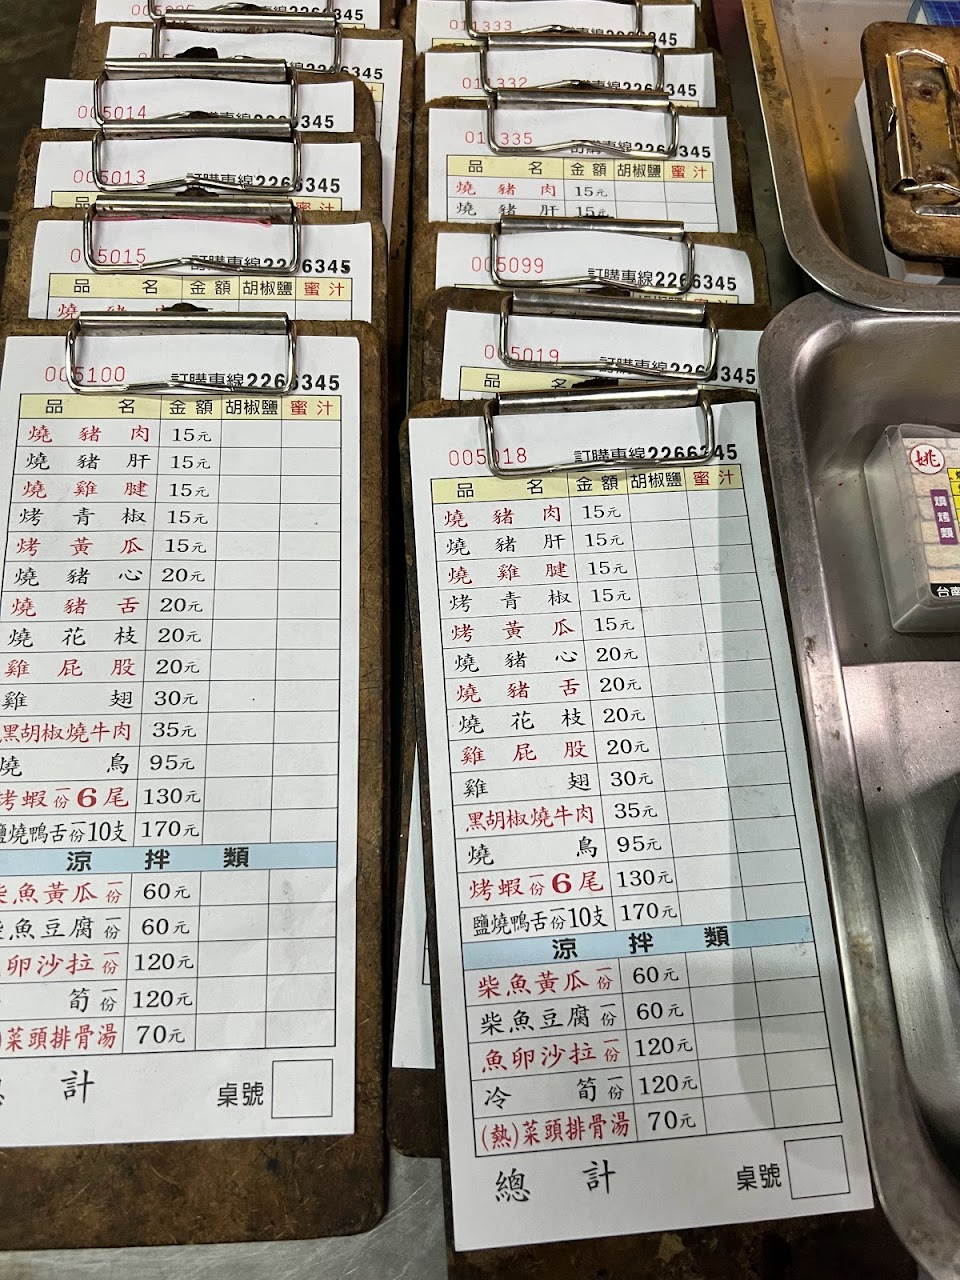 005014
345
005013
訂購專線2266345
005015
訂購專線2266345
品 名 金額 胡椒鹽 蜜汁
005100
訂購專線2266345
品 名 金額 胡椒鹽 蜜汁
燒豬肉 15元
燒豬肝 15元
燒雞腱 15元
烤青椒 15元
烤黃瓜 15元
燒豬心 20元
燒豬舌 20元
燒花枝 20元
雞屁股 20元
雞翅 30元
黑胡椒燒牛肉 35元
燒鳥 95元
烤蝦一份6尾 130元
鹽燒鴨舌一份10支 170元
涼拌類
柴魚黃瓜一份 60元
柴魚豆腐一份 60元
卵沙拉一份 120元
筍一份 120元
(熱)菜頭排骨湯 70元
計
桌號
011333
011332
011335
訂購專線2266345
品 名 金額 胡椒鹽 蜜汁
燒豬肉 15元
燒豬肝 15元
005099
訂購專線2266345
005019
訂購專線2266345
品
005018
訂購專線2266345
品 名 金額 胡椒鹽 蜜汁
燒豬肉 15元
燒豬肝 15元
燒雞腱 15元
烤青椒 15元
烤黃瓜 15元
燒豬心 20元
燒豬舌 20元
燒花枝 20元
雞屁股 20元
雞翅 30元
黑胡椒燒牛肉 35元
燒鳥 95元
烤蝦一份6尾 130元
鹽燒鴨舌一份10支 170元
涼拌類
柴魚黃瓜一份 60元
柴魚豆腐一份 60元
魚卵沙拉一份 120元
冷筍一份 120元
(熱)菜頭排骨湯 70元
總計
桌號
姚
燒烤類
台南